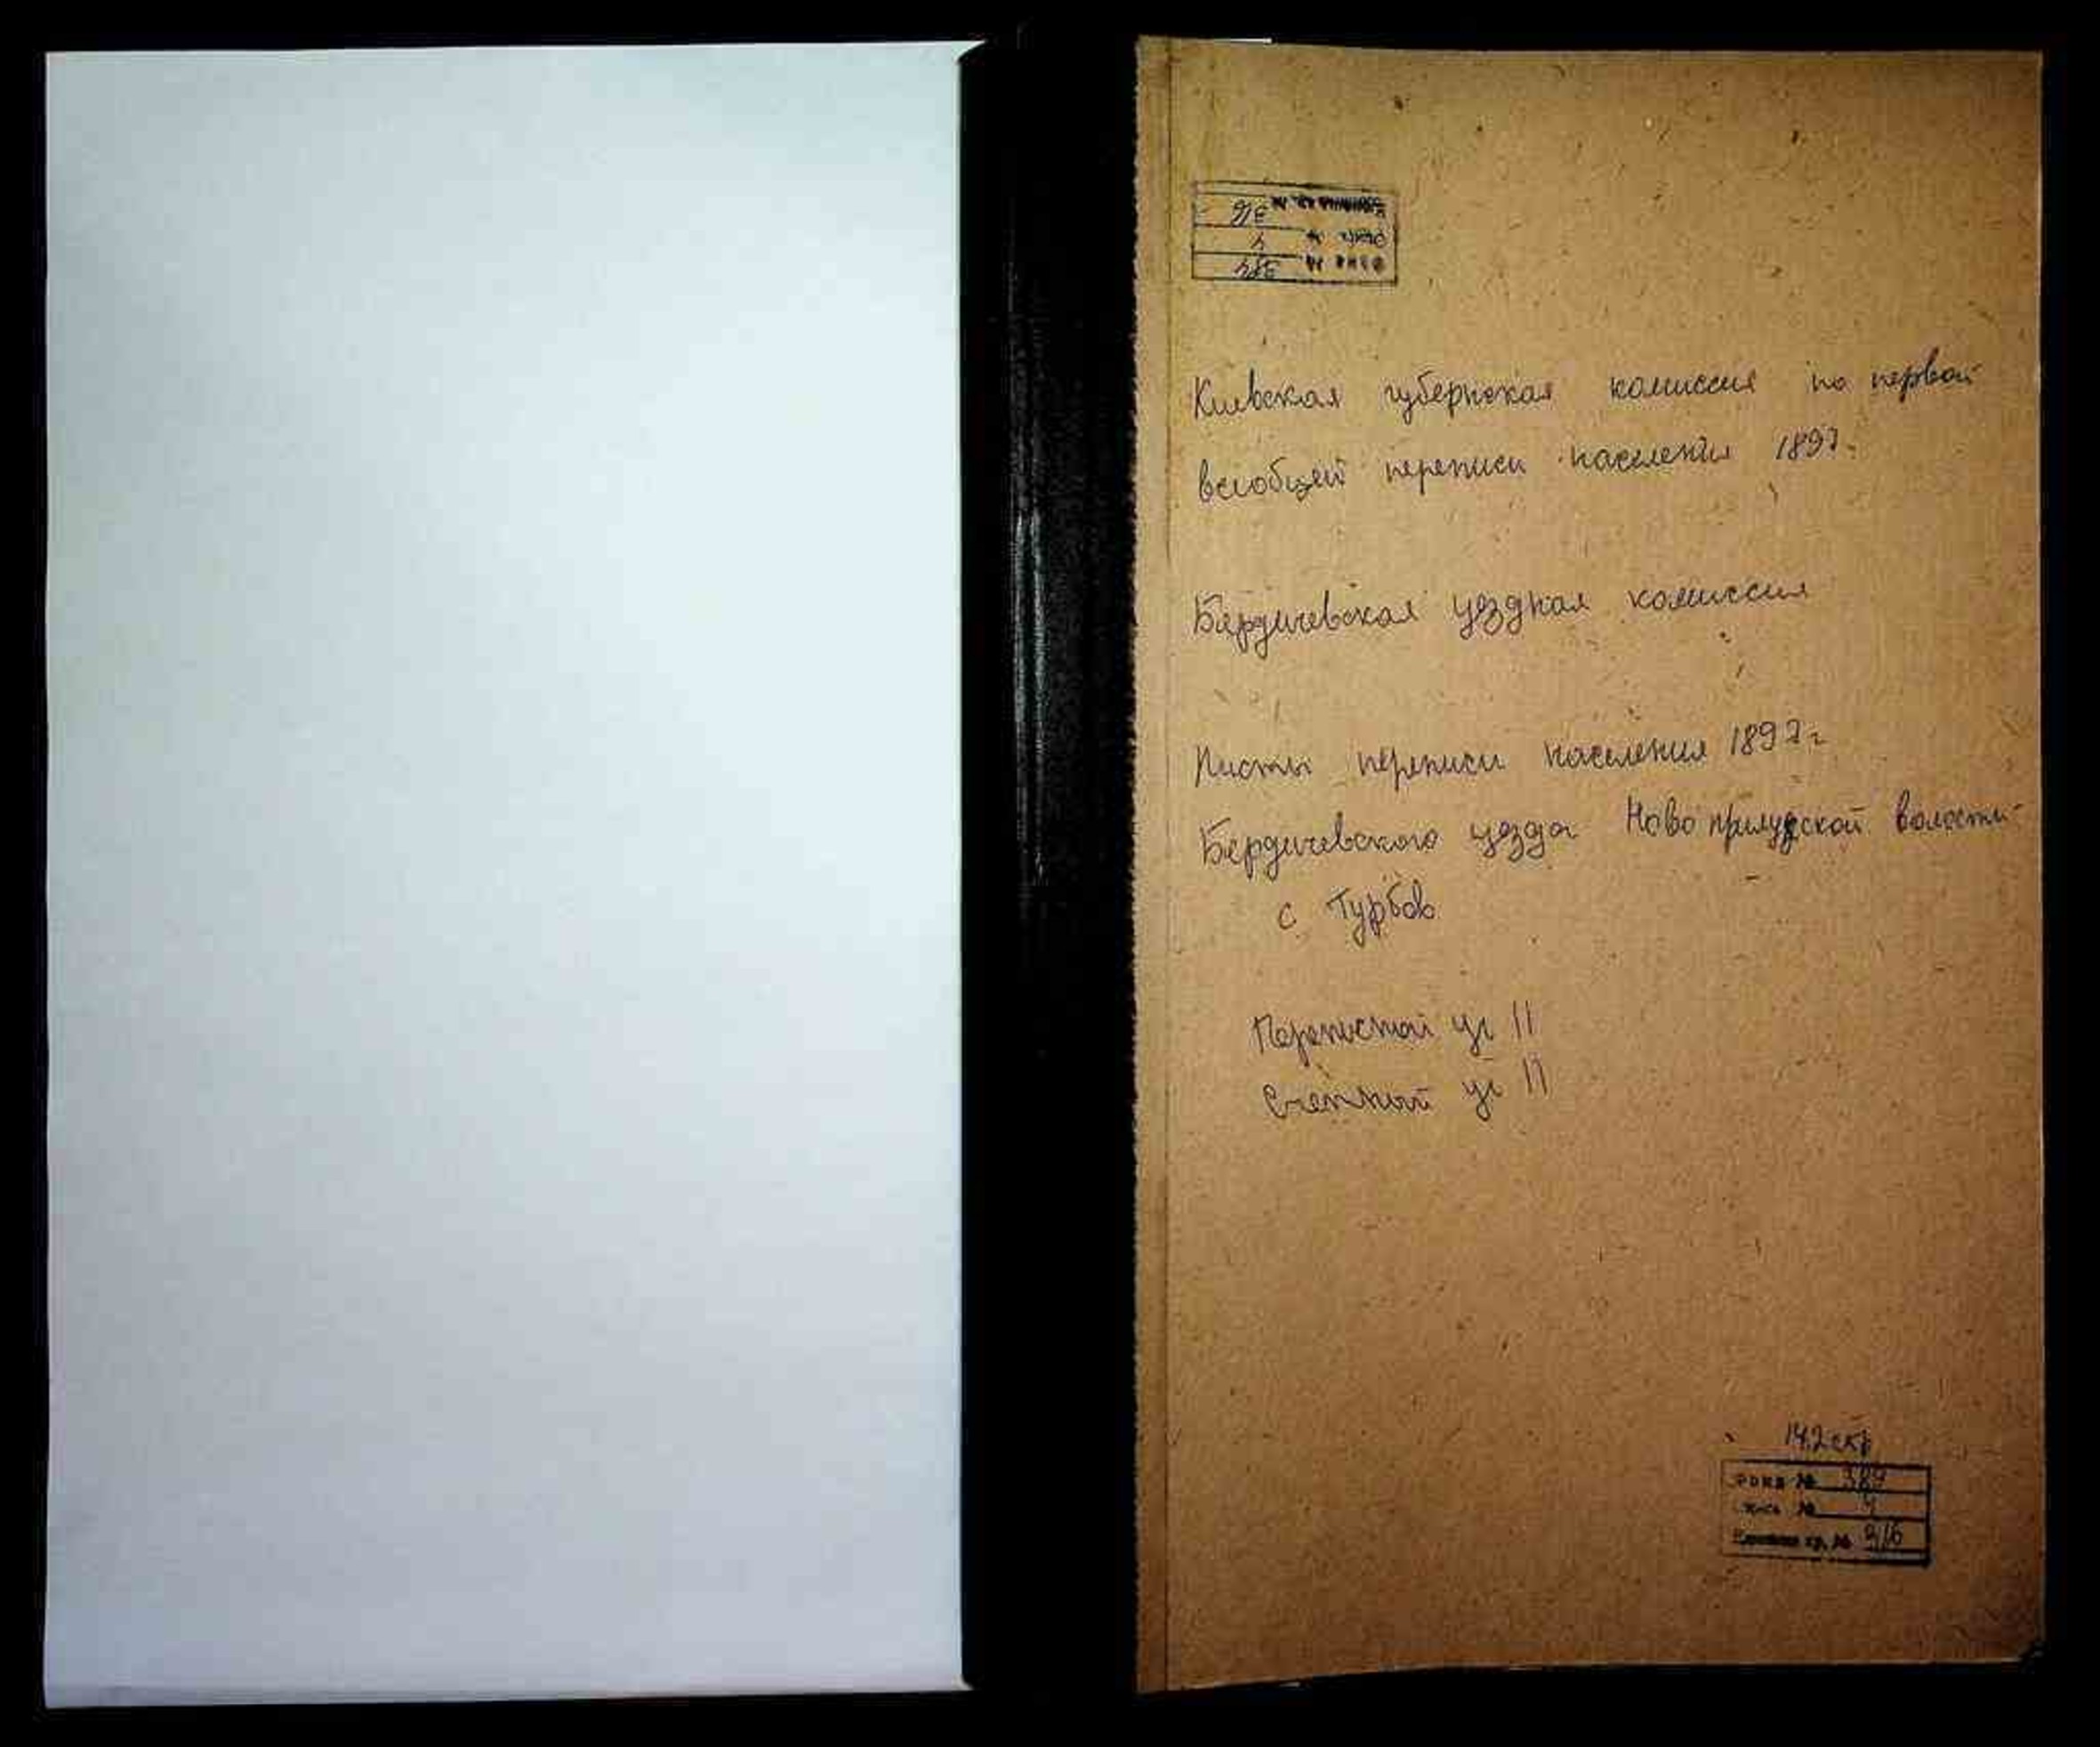 Единица хр. № 316
Опись № 4
Фонд № 384
Киевская губернская комиссия по первой
всеобщей переписи населения 1897г.
Бердичевская уездная комиссия
Листы переписи населения 1897г
Бердичевского уезда Новоприлукской волости
с Турбов
Переписной уч 11
Счетный уч 11
142 скр
Фонд № 384
Опись № 4
Единица хр. № 316